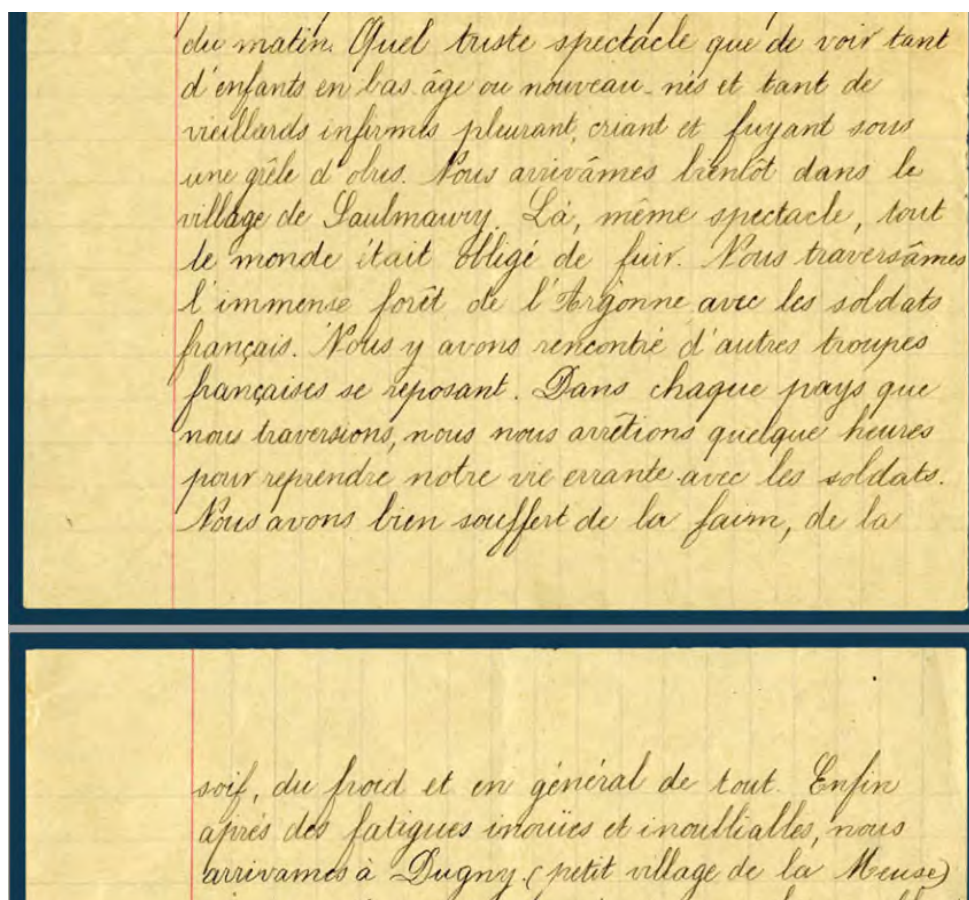 du matin. Quel triste spectacle que de voir tant
d'enfants en bas âge ou nouveau-nés et tant de
vieillards infirmes pleurant, criant et fuyant sous
une grêle d'obus. Nous arrivâmes bientôt dans le
village de Saulmaury. Là, même spectacle, tout
le monde était obligé de fuir. Nous traversâmes
l'immense forêt de l'Argonne avec les soldats
français. Nous y avons rencontré d'autres troupes
françaises se reposant. Dans chaque pays que
nous traversions, nous nous arrêtions quelque heures
pour reprendre notre vie errante avec les soldats.
Nous avons bien souffert de la faim, de la
soif, du froid et en général de tout. Enfin
après des fatigues inouïes et inoubliables, nous
arrivames à Dugny (petit village de la Meuse)